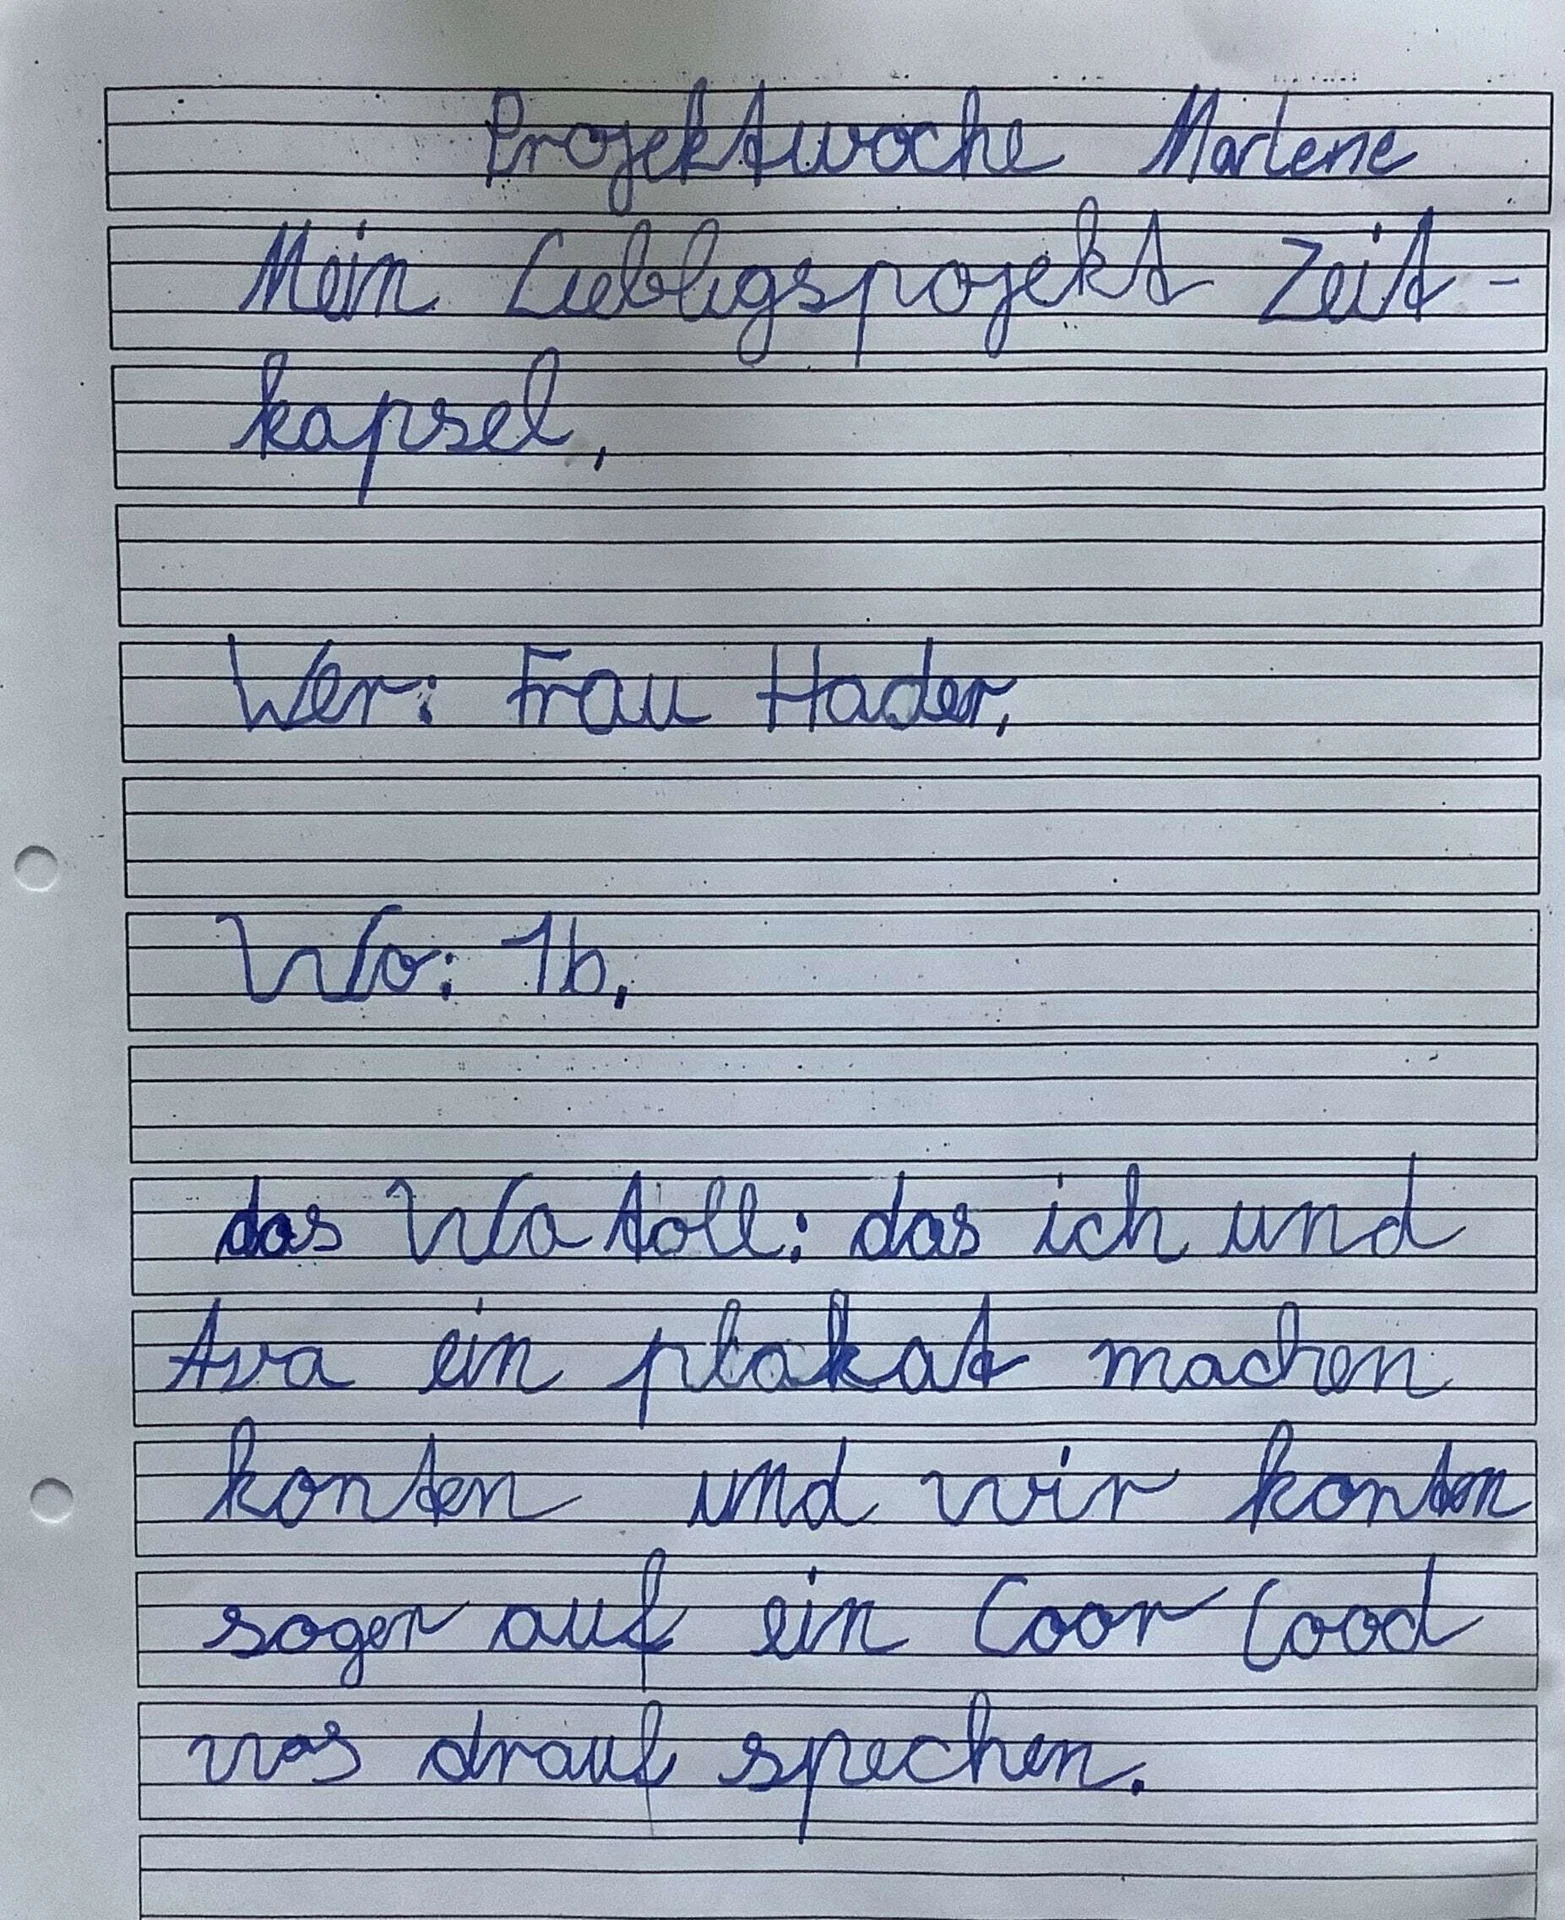 Projektwoche Marlene
Mein Liebligspojekt Zeit-
kapsel,
Wer: Frau Hader,
Wo: 1b,
das Wa toll: das ich und
Ava ein plakat machen
konten und wir konten
soger auf ein Coor Cood
was drauf spechen.